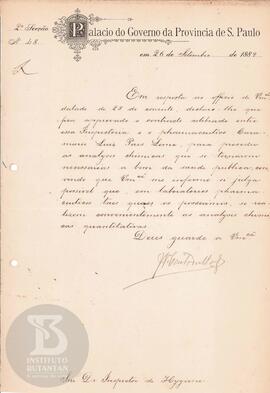 2ª Secção
Palacio do Governo da Provincia de S. Paulo
N. 48.
em, 26 de Setembro de 1889
Em resposta ao officio de Vmcê
datado de 25 do corrente, declaro-lhe que
fica approvado o contracto celebrado entre
essa Inspectoria e o pharmaceutico
Luiz Pais Leme, para proceder
às analyses chimicas que se tornarem
necessarias a bem da saude publica,
vindo que Vmcê me informe se julga
possivel que, em laboratorios pharma-
ceuticos taes quaes os possuimos, se rea-
lizem convenientemente as analyses chimi-
cas quantitativas.
Deus guarde a Vmcê
Snr. Dr. Inspector de Hygiene
INSTITUTO
BUTANTAN
A serviço da vida